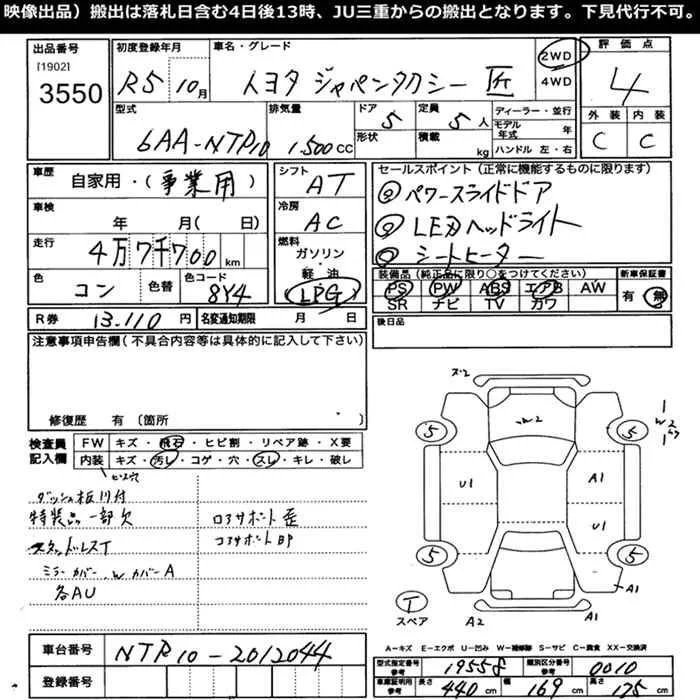 映像出品）搬出は落札日含む4日後13時、JU三重からの搬出となります。下見代行不可。
出品番号
[1902]
3550
初度登録年月
R5 10月
車名・グレード
トヨタ ジャパンタクシー 匠
2WD
4WD
評価点
4
外装 内装
C C
型式
6AA-NTP10
排気量
1.500cc
ドア 5
形状
定員 5人
積載 kg
ディーラー・並行
モデル年式 年
ハンドル 左・右
車歴
自家用・(事業用)
車検
年 月( 日)
走行
4万7千700km
色
コン
色替
色コード
8Y4
シフト
AT
冷房
AC
燃料
ガソリン・軽油
LPG
セールスポイント（正常に機能するものに限ります）
パワースライドドア
LEDヘッドライト
シートヒーター
装備品（純正品に限り○をつけてください）
PS PW ABS エアB AW
SR ナビ TV カワ
新車保証書
有 無
R券 13.110円
名変通知期限 月 日
後日品
注意事項申告欄（不具合内容等は具体的に記入して下さい）
修復歴 有〔箇所 〕
検査員記入欄
FW キズ・飛石・ヒビ割・リペア跡・X要
内装 キズ・汚レ・コゲ・穴・スレ・キレ・破レ
ビス穴
ダッシュ板川付
特装品一部欠
ミラーカバー、Wカバー A
各AU
コアサポート歪
コアサポートEP
ズ2
W2
5
5
U1
A1
U1
5
5
A1
A2
A2
T
スペア
A=キズ E=エクボ U=凹み W=補修跡 S=サビ C=腐食 XX=交換済
車台番号
NTP10-2012044
登録番号
型式指定番号 参考
19558
類別区分番号 参考
0010
車庫証明用 参考
長さ 440cm
幅 169cm
高さ 175cm